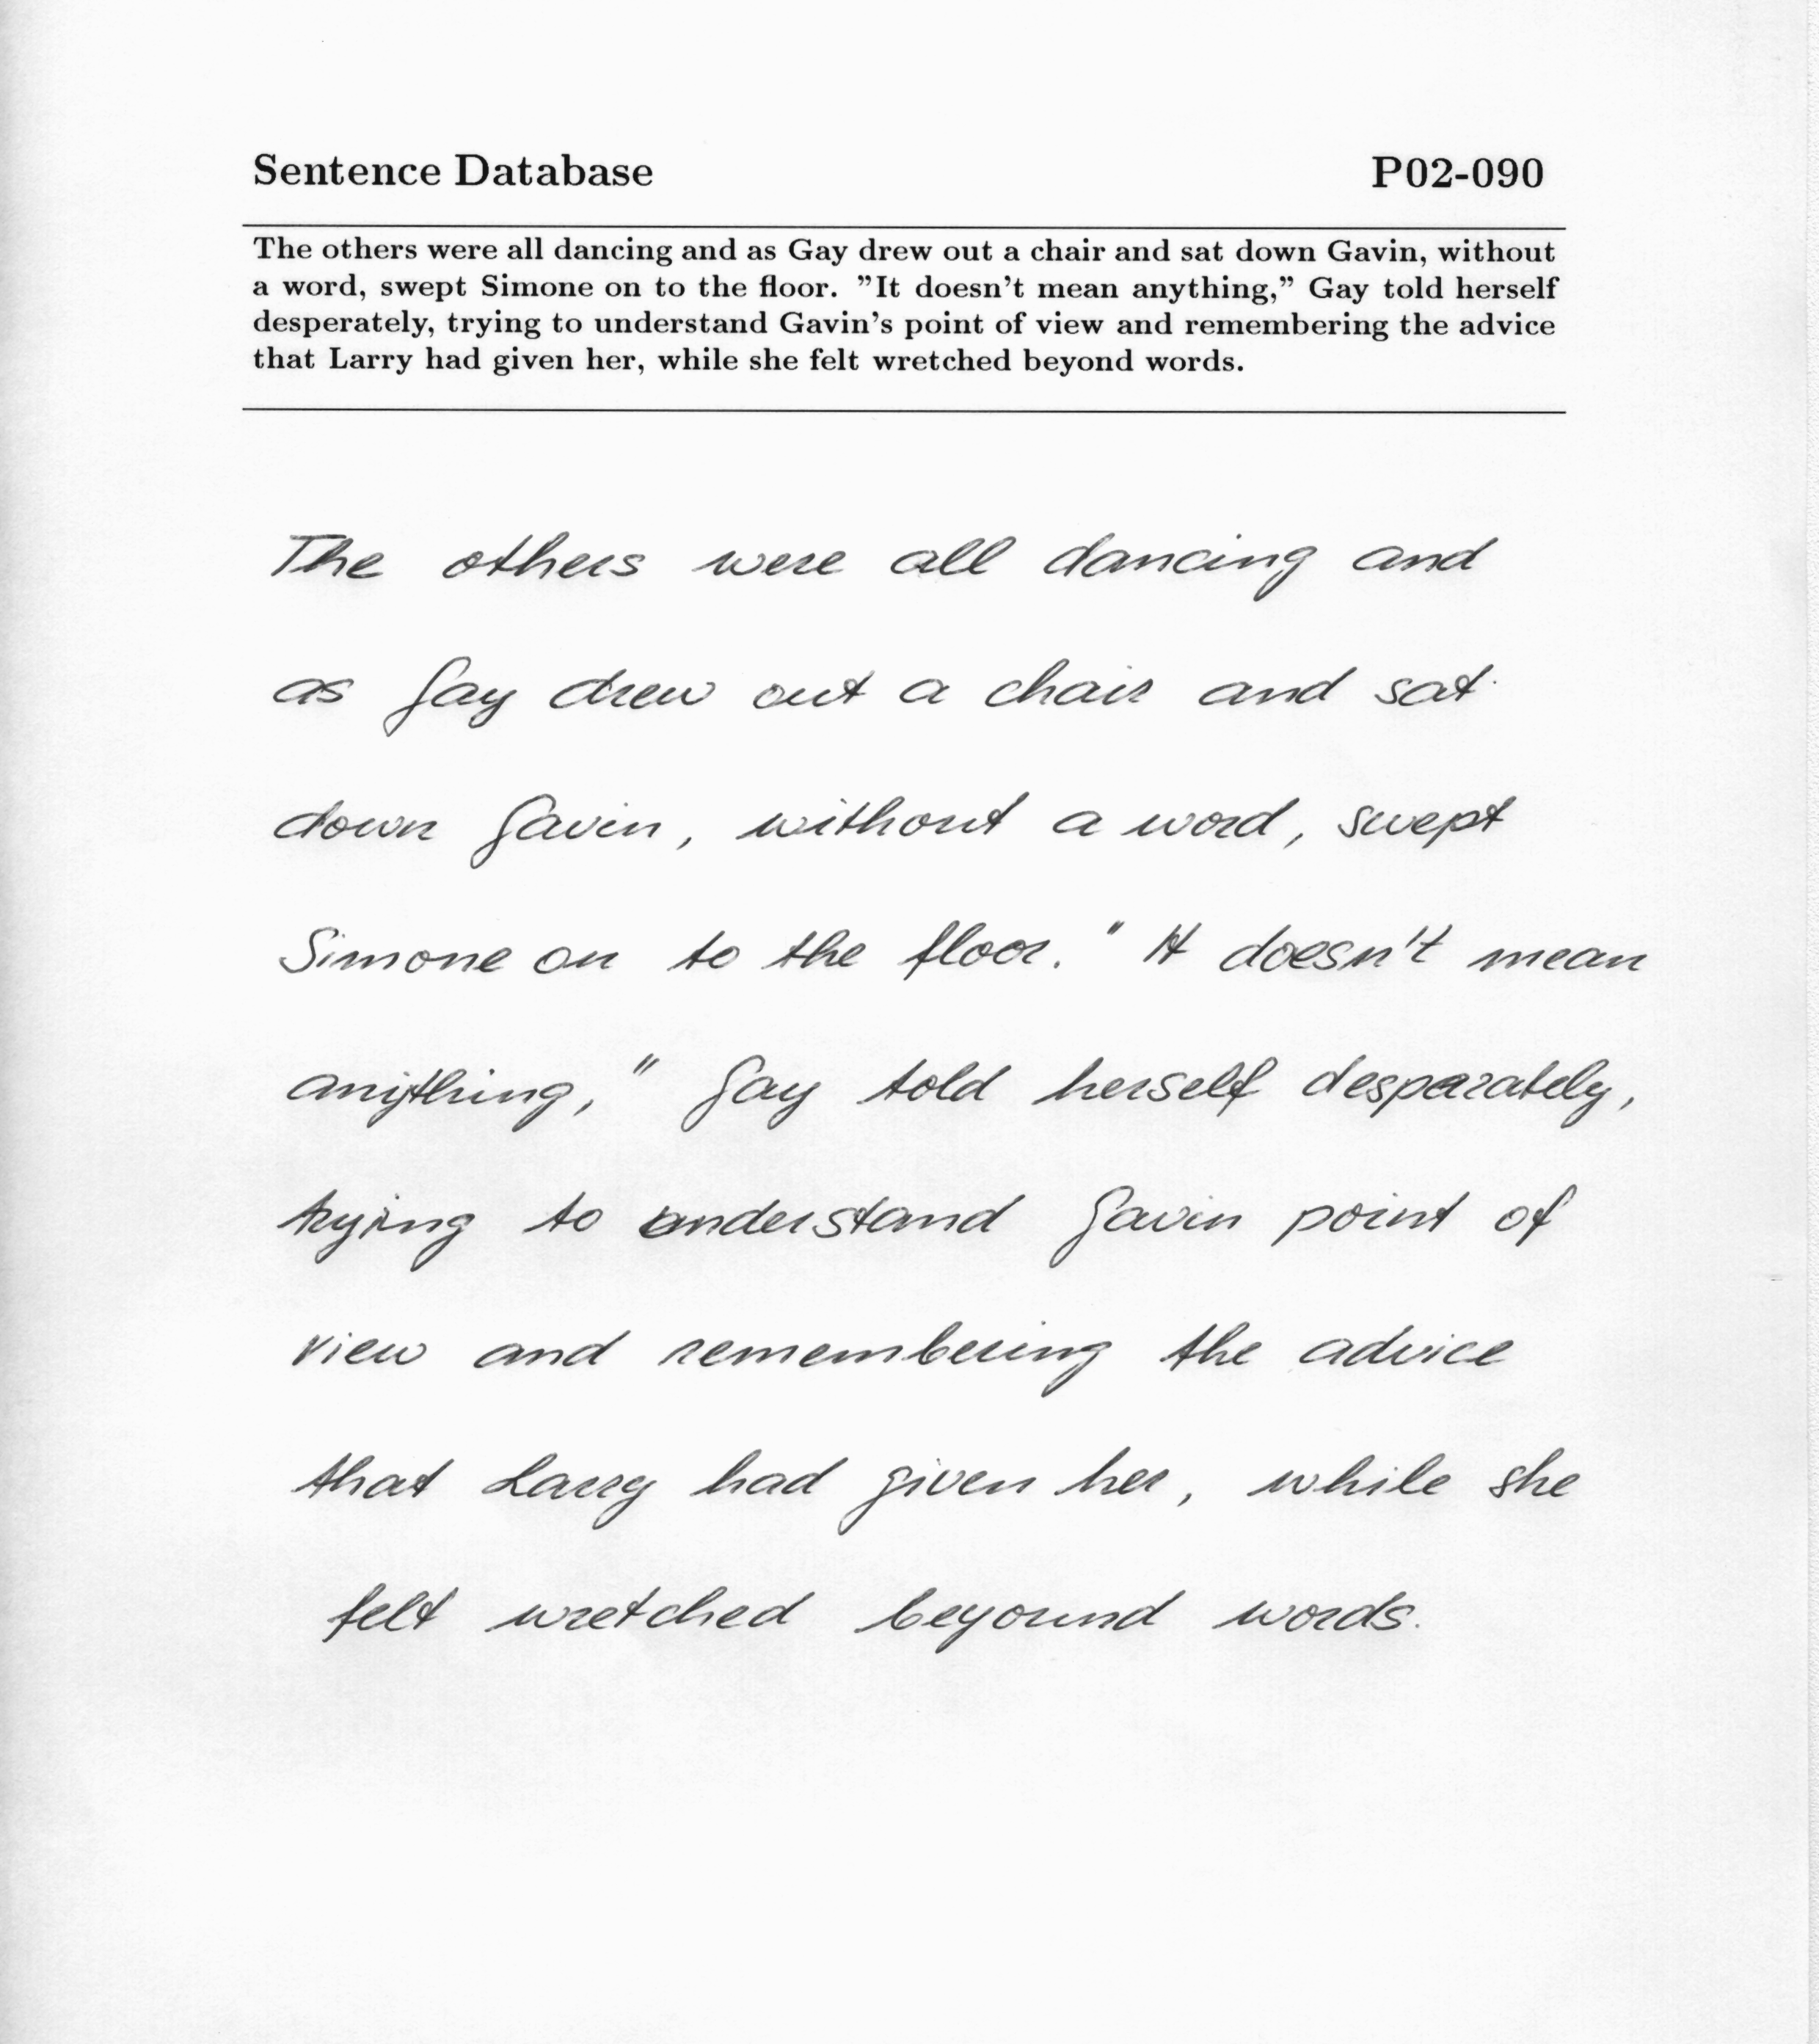 Sentence Database P02-090
The others were all dancing and as Gay drew out a chair and sat down Gavin, without
a word, swept Simone on to the floor. ”It doesn't mean anything,” Gay told herself
desperately, trying to understand Gavin's point of view and remembering the advice
that Larry had given her, while she felt wretched beyond words.
The others were all dancing and
as Gay drew out a chair and sat
down Gavin, without a word, swept
Simone on to the floor. " It doesn't mean
anything," Gay told herself desparately,
trying to understand Gavin point of
view and remembering the advice
that Larry had given her, while she
felt wretched beyound words.